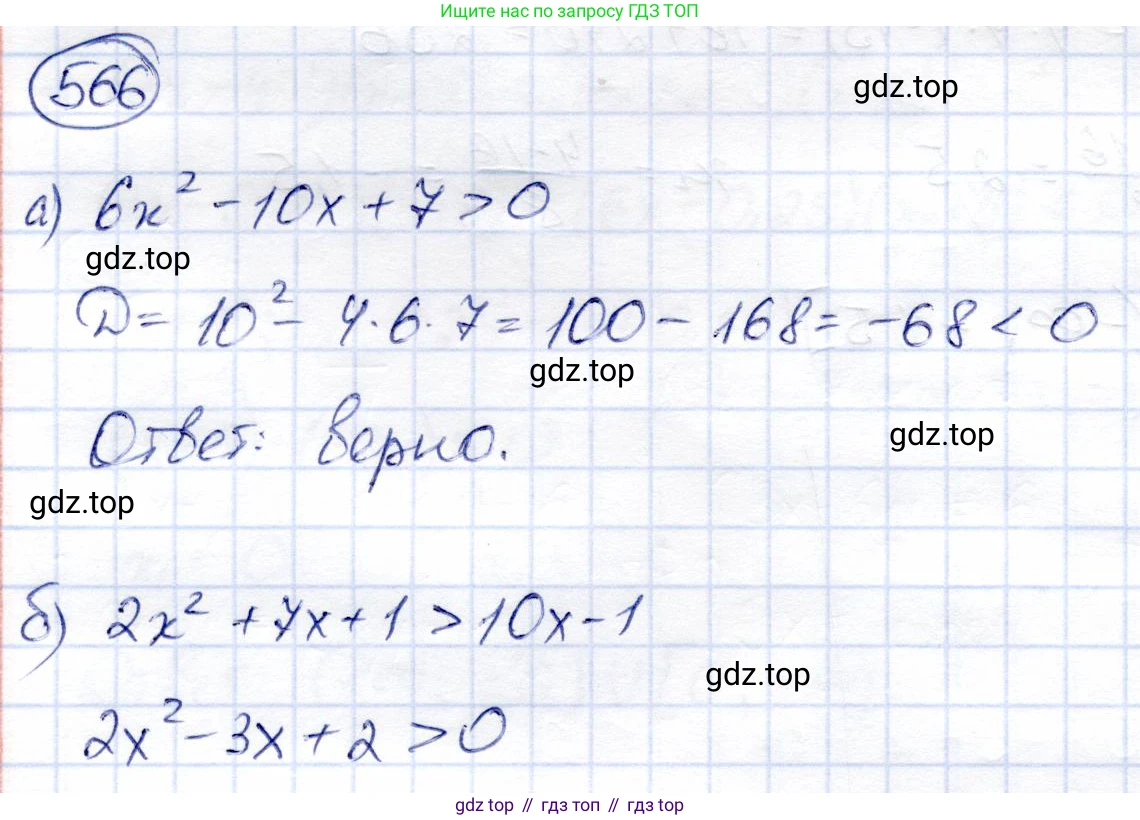 Ищите нас по запросу ГДЗ ТОП
566
gdz.top
а) 6x² - 10x + 7 > 0
gdz.top
D = 10² - 4 · 6 · 7 = 100 - 168 = -68 < 0
gdz.top
Ответ: верно.
gdz.top
gdz.top
б) 2x² + 7x + 1 > 10x - 1
gdz.top
2x² - 3x + 2 > 0
gdz top // гдз топ // гдз top